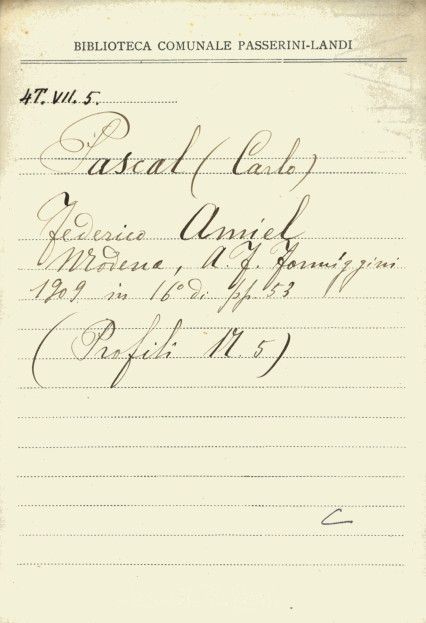 BIBLIOTECA COMUNALE PASSERINI-LANDI
4T. VII. 5.
Pascal (Carlo)
Federico Amiel
Modena, A. F. Formiggini
1909 in 16° di pp. 53
(Profili N. 5)
C